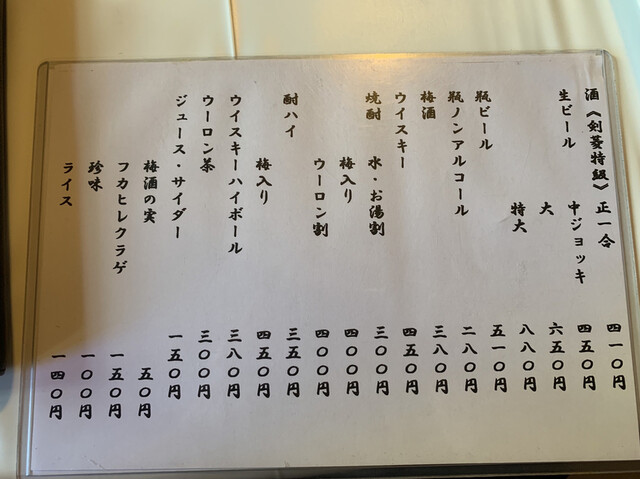 酒《剣菱特級》 正一合 四一〇円
生ビール 中ジョッキ 四五〇円
大 六五〇円
特大 八八〇円
瓶ビール 五一〇円
瓶ノンアルコール 二八〇円
梅酒 三八〇円
ウイスキー 四五〇円
焼酎 水・お湯割 三〇〇円
梅入り 四〇〇円
ウーロン割 四〇〇円
酎ハイ 三五〇円
梅入り 四五〇円
ウイスキーハイボール 三八〇円
ウーロン茶 三〇〇円
ジュース・サイダー 一五〇円
梅酒の実 五〇円
フカヒレクラゲ 一五〇円
珍味 一〇〇円
ライス 一四〇円